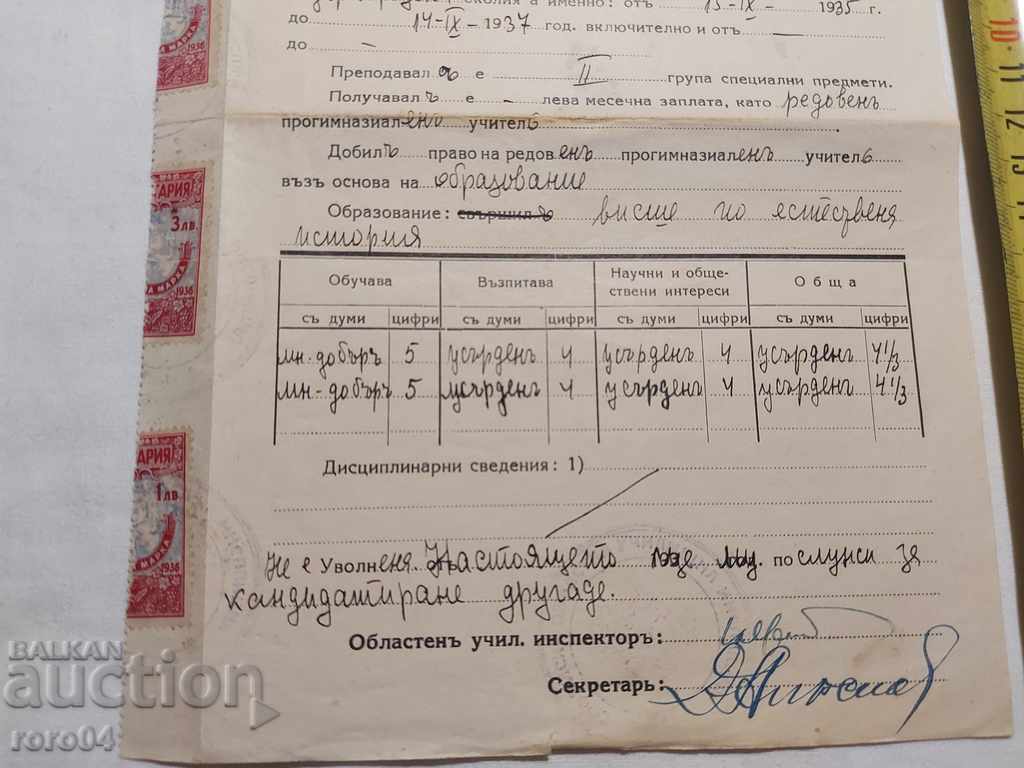 сколия а именно: отъ 15-IX- 1935 г.
до 14-IX-1937 год. включително и отъ —
до —
Преподавал е II група специални предмети.
Получавалъ е - лева месечна заплата, като редовенъ
прогимназиаленъ учитель
Добилъ право на редовенъ прогимназиаленъ учитель
възъ основа на образование
Образование: свършилъ висше по естествена
история
Обучава Възпитава Научни и обще-
ствени интереси Обща
съ думи цифри съ думи цифри съ думи цифри съ думи цифри
мн-добъръ 5 усърденъ 4 усърденъ 4 усърденъ 4 1/3
мн-добъръ 5 усърденъ 4 усърденъ 4 усърденъ 4 1/3
Дисциплинарни сведения: 1)
Не е Уволнена. Настоящето по служи за
кандидатиране другаде.
Областенъ учил. инспекторъ:
Секретарь:
ТАРИЯ
3 лв.
МАРКА
1936
АРИЯ
1 лв
МАРКА
1936
МАРКА
1936
10 11 12 13 14
BALKAN
auction
roro04